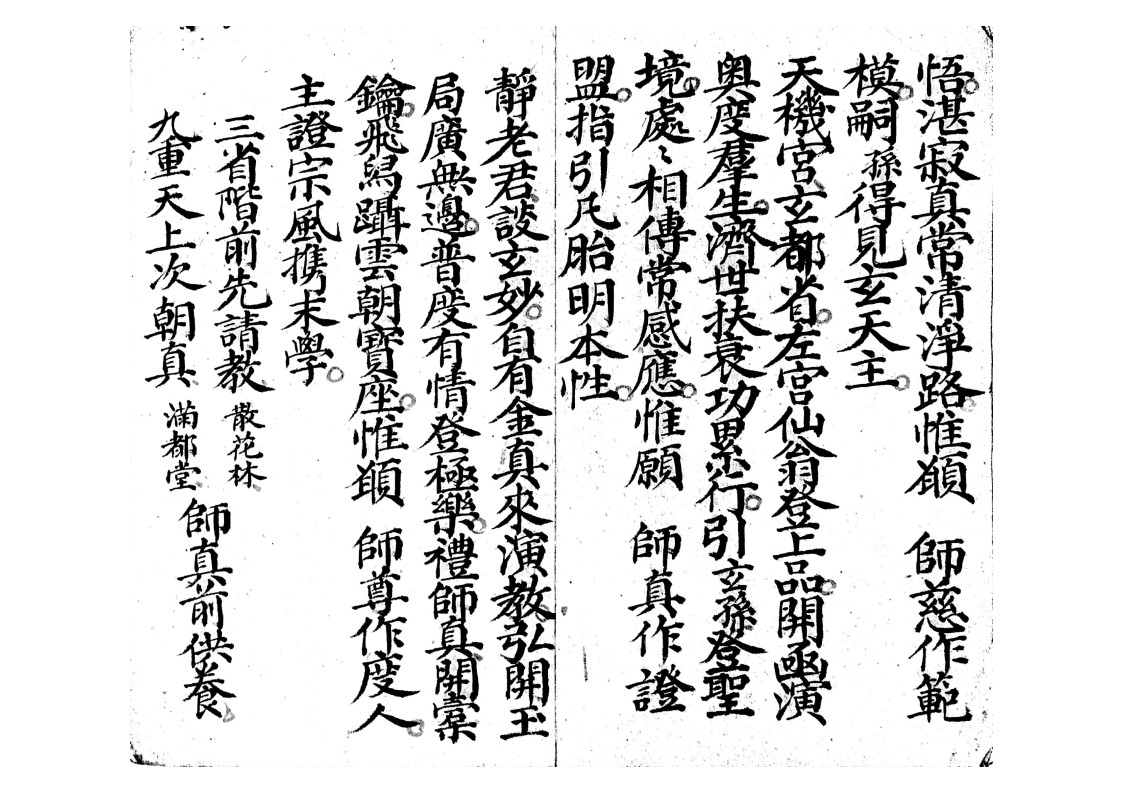 悟湛寂真常清淨路惟願　師慈作範
模嗣孫得見玄天主
天機宮玄都省左宮仙翁登上品開函演
奥度羣生濟世扶衰功累行引玄孫登聖
境處々相傳常感應惟願　師真作證
盟指引凡胎明本性
靜老君談玄妙自有金真來演教弘開玉
局廣無邊普度有情登極樂禮師真開橐
鑰飛舄躡雲朝寶座惟願　師尊作度人
主證宗風携末學
三省階前先請教　散花林
九重天上次朝真　滿都堂
師真前供養